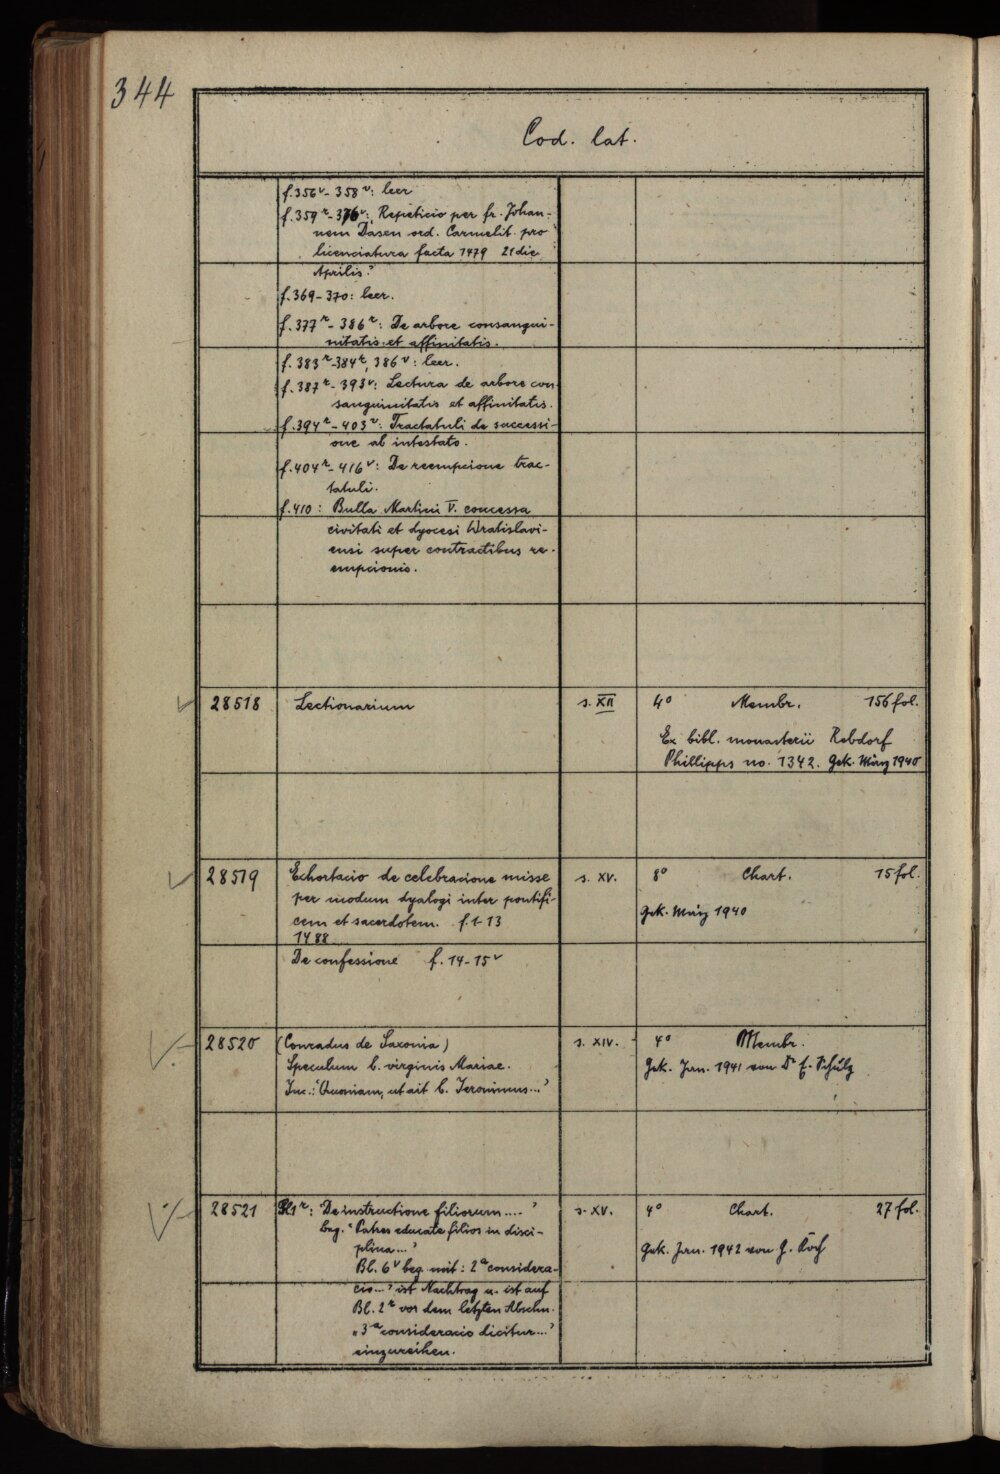 344
Cod. lat.
f.356v - 358v: leer
f.359r - 376v: Repeticio per fr. Johan-
nem Dasen ord. Carmelit. pro
licenciatura facta 1479 21 die
Aprilis?
f.369-370: leer.
f.377r - 386r: De arbore consangui-
nitatis et affinitatis.
f.383r-384r, 386v: leer.
f.387r - 393v: Lectura de arbore con
sanguinitatis et affinitatis.
f.394r - 403v: Tractatuli de successi-
one ab intestato.
f.404r - 416v: De reempcione trac-
tatuli.
f.410: Bulla Martini V. concessa
civitati et dyocesi Wratislavi-
ensi super contractibus re-
empcionis.
28518 Lectionarium s. XII 4° Membr. 156 fol.
Ex bibl. monasterii Rebdorf
Phillipps no. 1342. Gek. März 1940
28519 Exhortacio de celebracione misse s. XV. 8° Chart. 15 fol.
per modum dyalogi inter pontifi-
cem et sacerdotem. f. 1-13 Gek. März 1940
1488
De confessione f. 14-15v
28520 (Conradus de Saxonia) s. XIV. 4° Membr.
Speculum b. virginis Mariae. Gek. Jan. 1941 von Dr E. Schulz
Inc.: 'Quoniam, ut ait b. Jeronimus...'
28521 Bl. 1r: 'De instructione filiorum....' s. XV. 4° Chart. 27 fol.
beg. 'Patres educate filios in disci-
plina...' Gek. Jan. 1942 von G. Koch
Bl. 6v beg. mit: 2a considera-
cio...' ist Nachtrag u. ist auf
Bl. 2r vor dem letzten Abschn.
„3a consideracio dicitur...'
einzureihen.